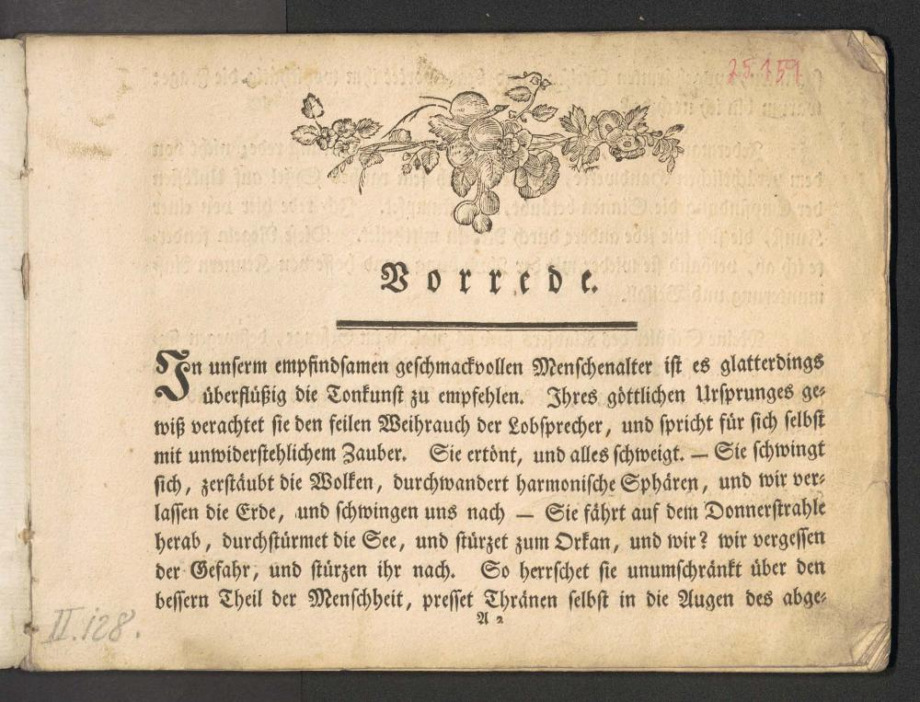 25159
Vorrede.
In unserm empfindsamen geschmackvollen Menschenalter ist es glatterdings
überflüßig die Tonkunst zu empfehlen. Ihres göttlichen Ursprunges ge-
wiß verachtet sie den feilen Weihrauch der Lobsprecher, und spricht für sich selbst
mit unwiderstehlichem Zauber. Sie ertönt, und alles schweigt. — Sie schwingt
sich, zerstäubt die Wolken, durchwandert harmonische Sphären, und wir ver-
lassen die Erde, und schwingen uns nach — Sie fährt auf dem Donnerstrahle
herab, durchstürmet die See, und stürzet zum Orkan, und wir? wir vergessen
der Gefahr, und stürzen ihr nach. So herrschet sie unumschränkt über den
bessern Theil der Menschheit, presset Thränen selbst in die Augen des abge-
A 2
II.128.